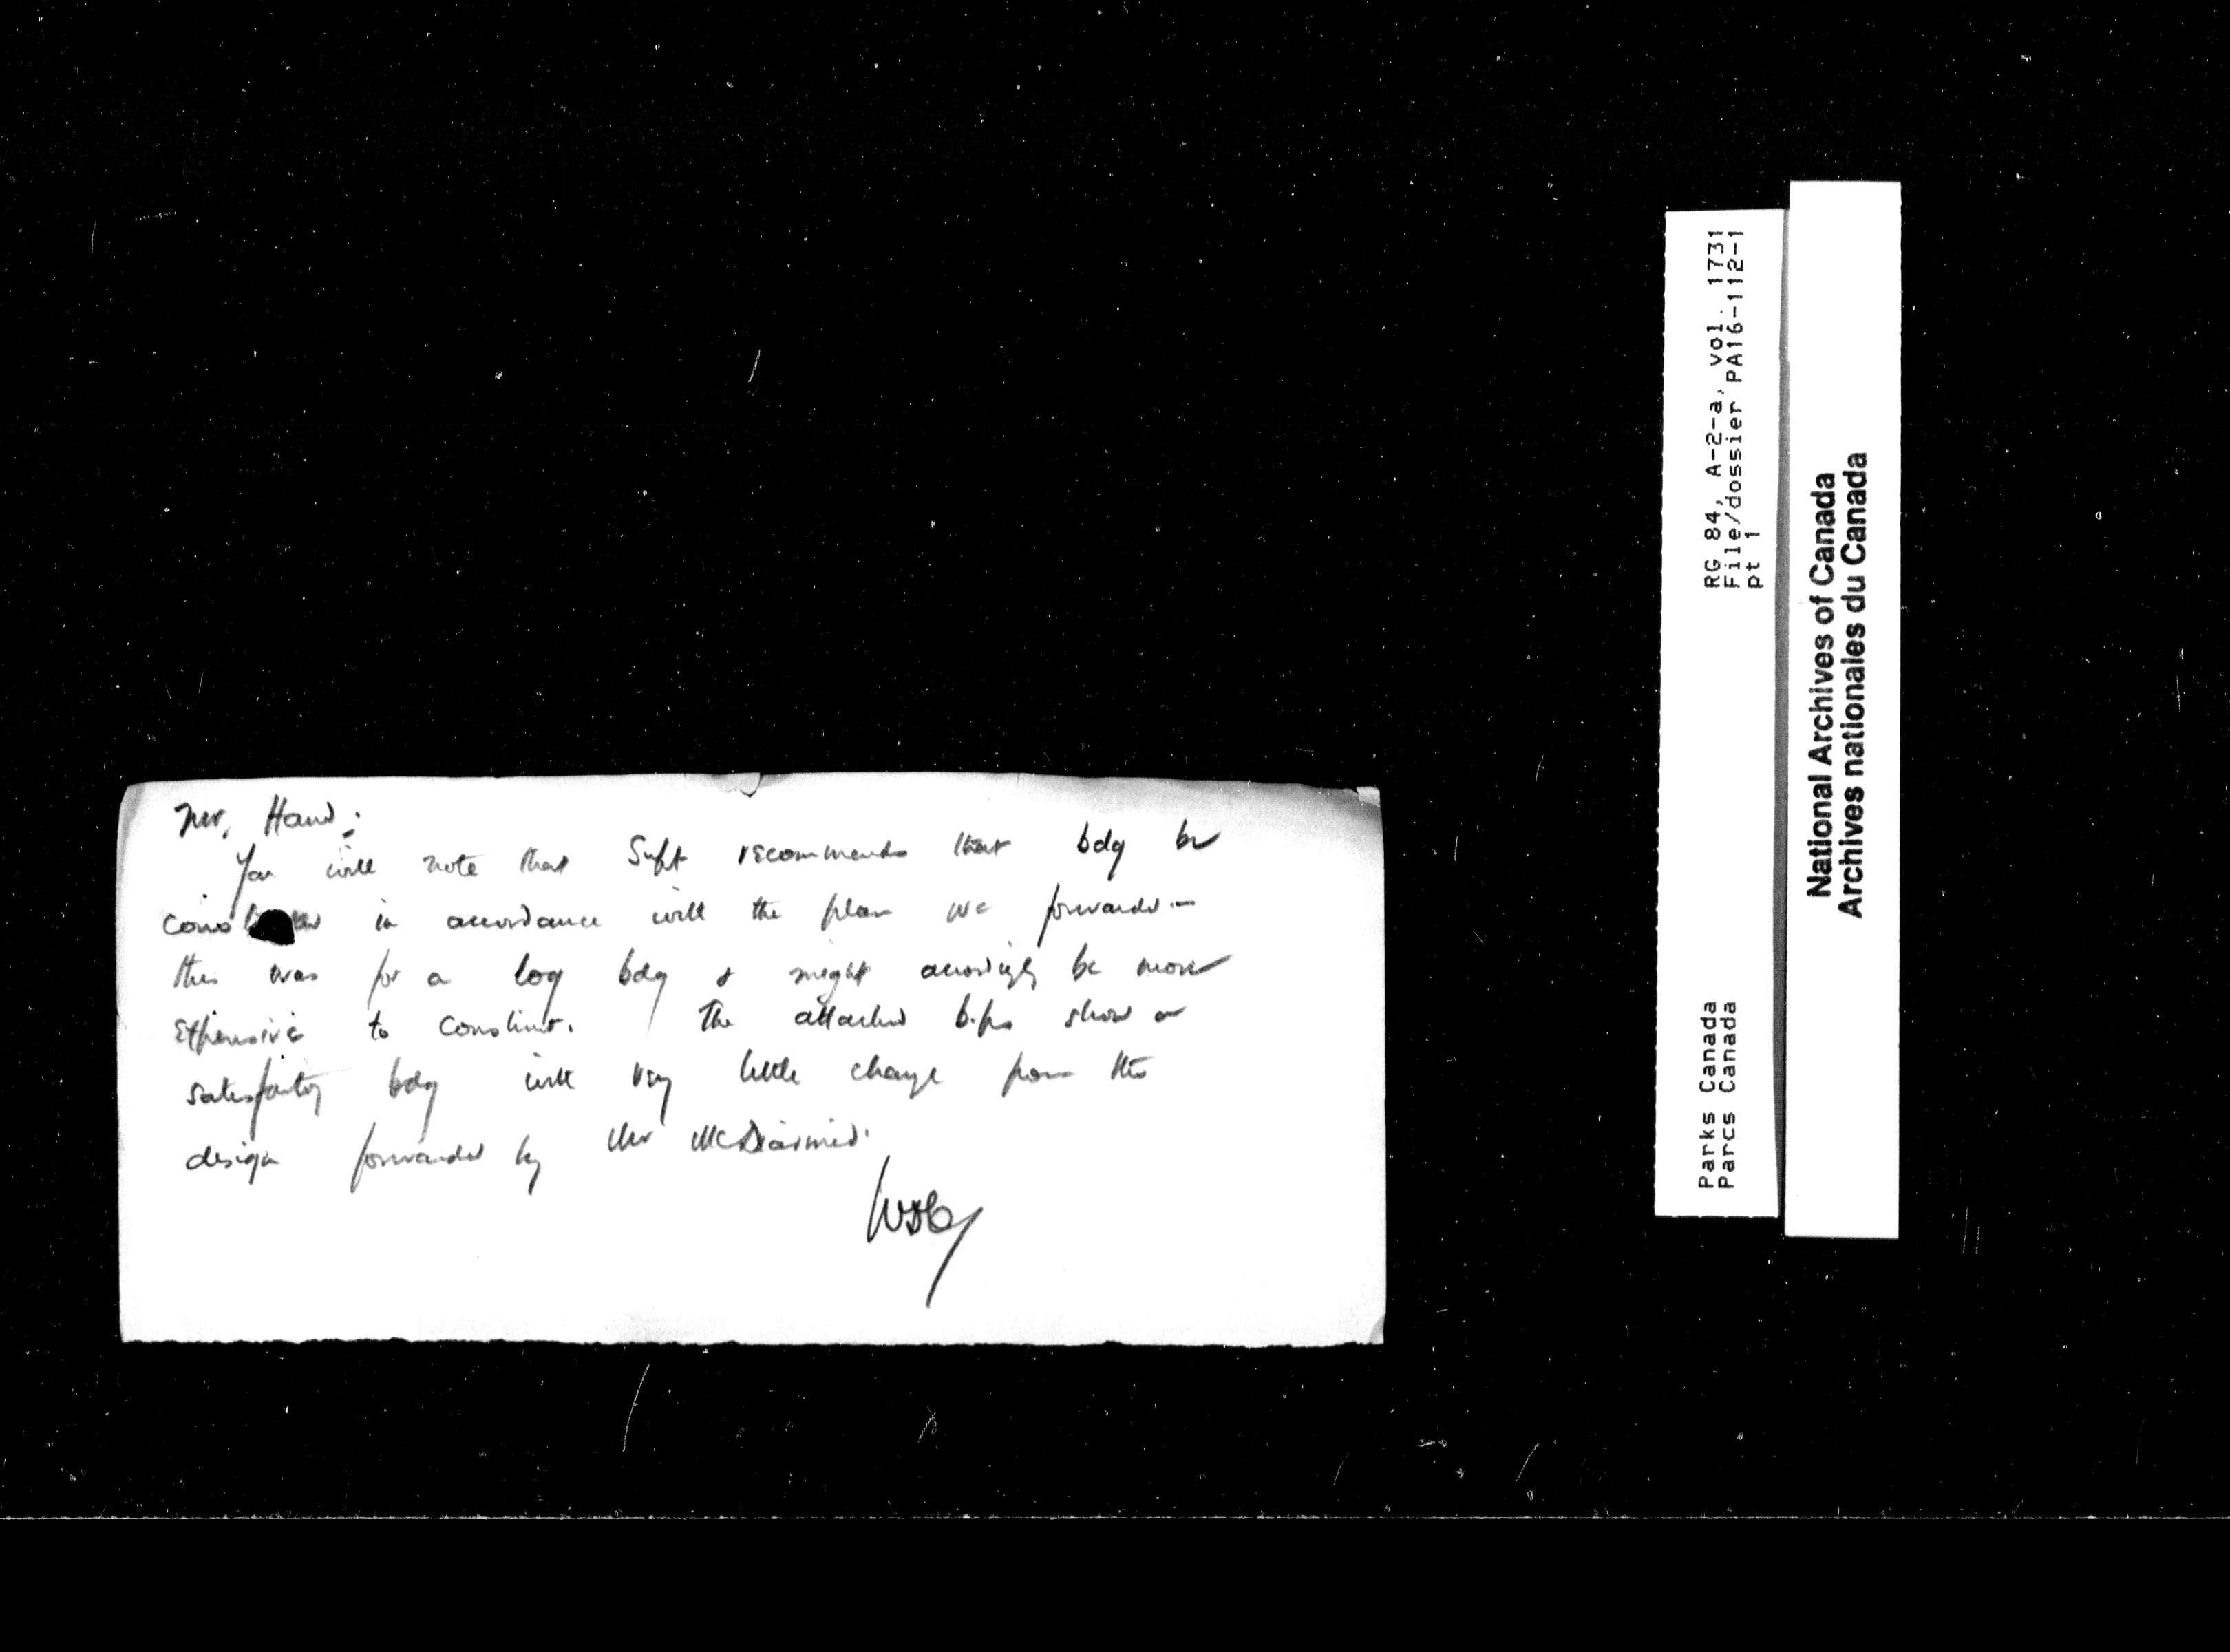 Mr. Hand:
You will note that Supt recommends that bdg be
in accordance with the plan we forwarded -
this was for a log bdg & might accordingly be more
expensive to construct. The attached b.ps show a
satisfactory bdg with very little change from the
design forwarded by Mr McDiarmid.
RG 84, A-2-a, vol. 1731
File/dossier PA16-112-1
pt 1
Parks Canada
Parcs Canada
National Archives of Canada
Archives nationales du Canada